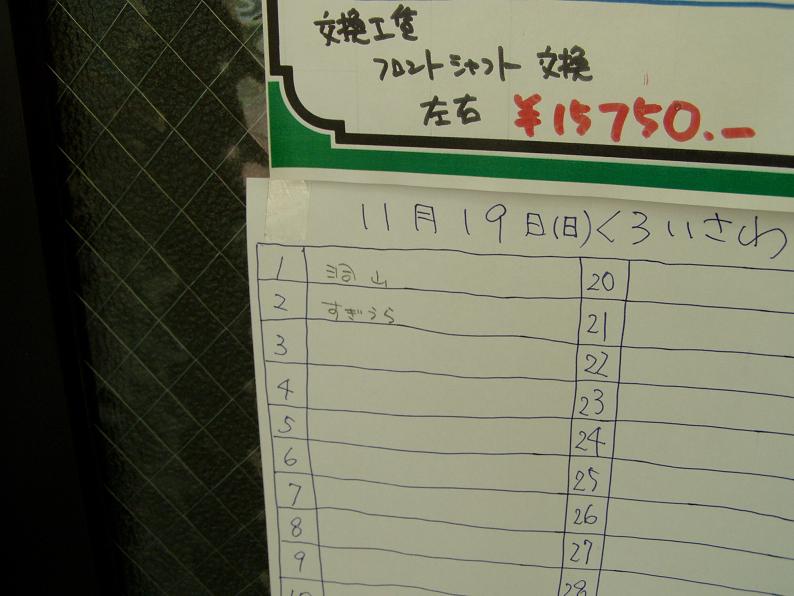 交換工賃
フロントシャフト 交換
左右 ¥15750.-
11月19日(日)くろいさわ
1 洞山 20
2 すぎうら 21
3 22
4 23
5 24
6 25
7 26
8 27
9 28
10